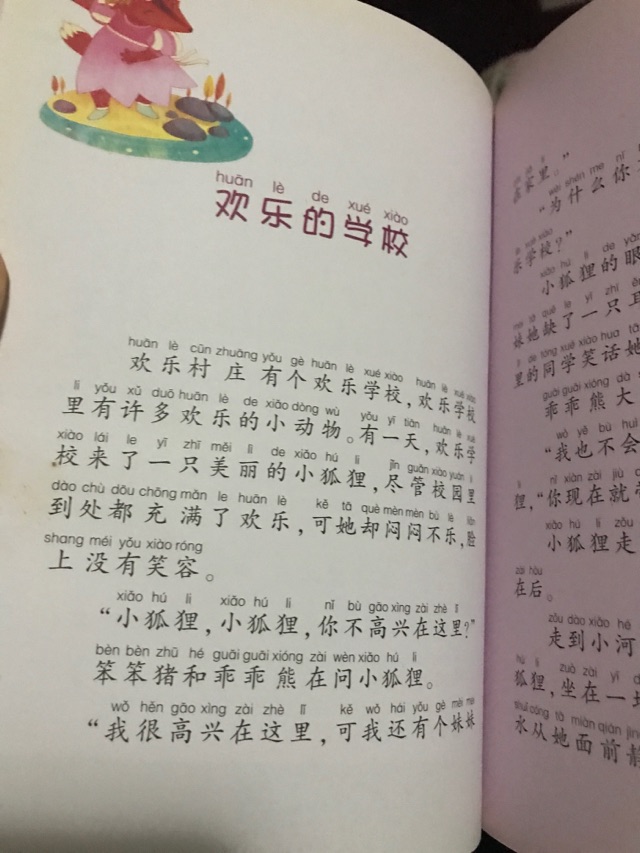 huān lè de xué xiào
欢乐的学校
huān lè cūn zhuāng yǒu gè huān lè xué xiào huān lè xué xiào
欢乐村庄有个欢乐学校，欢乐学校
lǐ yǒu xǔ duō huān lè de xiǎo dòng wù yǒu yī tiān huān lè xué
里有许多欢乐的小动物。有一天，欢乐学
xiào lái le yī zhī měi lì de xiǎo hú li jǐn guǎn xiào yuán lǐ
校来了一只美丽的小狐狸，尽管校园里
dào chù dōu chōng mǎn le huān lè kě tā què mèn mèn bù lè liǎn
到处都充满了欢乐，可她却闷闷不乐，脸
shang méi yǒu xiào róng
上没有笑容。
xiǎo hú li xiǎo hú li nǐ bù gāo xìng zài zhè lǐ
“小狐狸，小狐狸，你不高兴在这里？”
bèn bèn zhū hé guāi guāi xióng zài wèn xiǎo hú li
笨笨猪和乖乖熊在问小狐狸。
wǒ hěn gāo xìng zài zhè lǐ kě wǒ hái yǒu gè mèi mei
“我很高兴在这里，可我还有个妹妹
在家里。”
wèi shén me nǐ
“为什么你
乐学校？”
xiǎo hú li de yǎn
小狐狸的眼
妹她缺了一只耳
里的同学笑话她
guāi guāi xióng dà
乖乖熊大
wǒ yě bù huì
“我也不会
nǐ xiàn zài jiù
狸，“你现在就
xiǎo hú li zǒu
小狐狸走
zài hòu
在后。
zǒu dào xiǎo hé
走到小河
hú li zuò zài yī
狐狸，坐在一
shuǐ cóng tā miàn qián jìng
水从她面前静